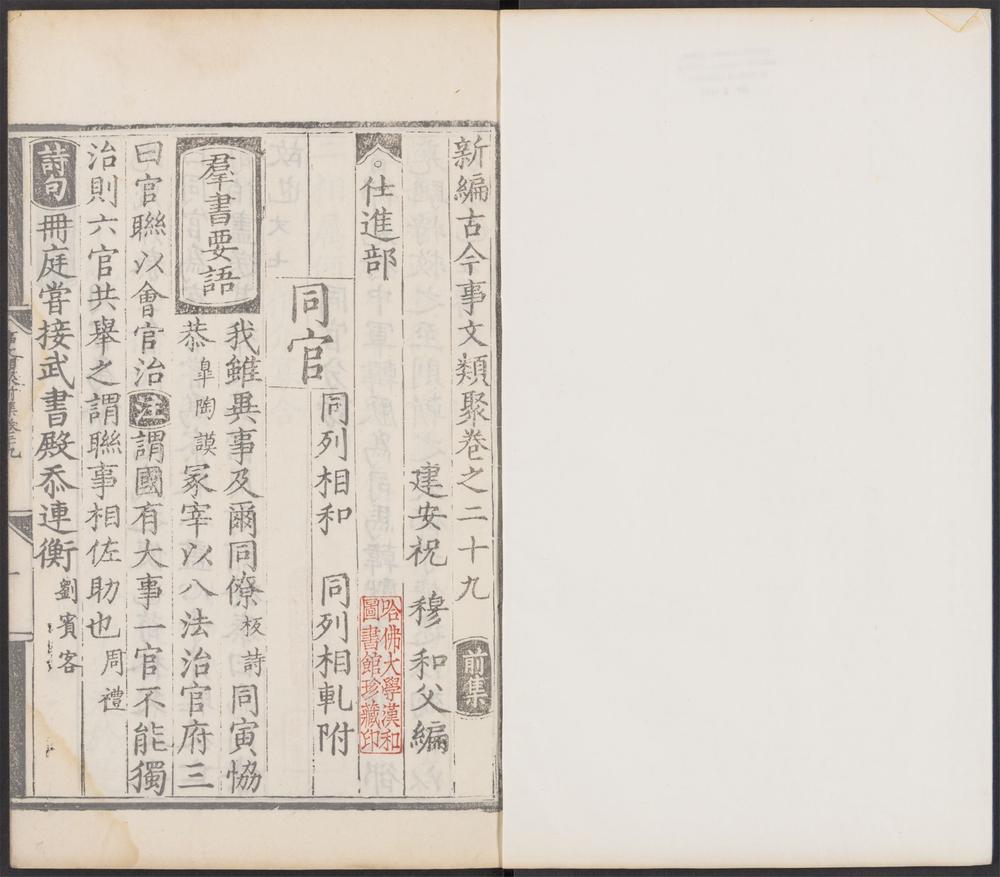 新編古今事文類聚巻之二十九 前集
建安祝 穆 和父編
哈佛大學漢和
圖書館珍藏印
。仕進部
同官 同列相和 同列相軋附
羣書要語 我雖異事及爾同僚 板詩 同寅恊
恭 皐陶謨 冢宰以八法治官府三
曰官聯以會官治 注 謂國有大事一官不能獨
治則六官共舉之謂聯事相佐助也 周禮
詩句 冊庭嘗接武書殿忝連衡 劉賓客